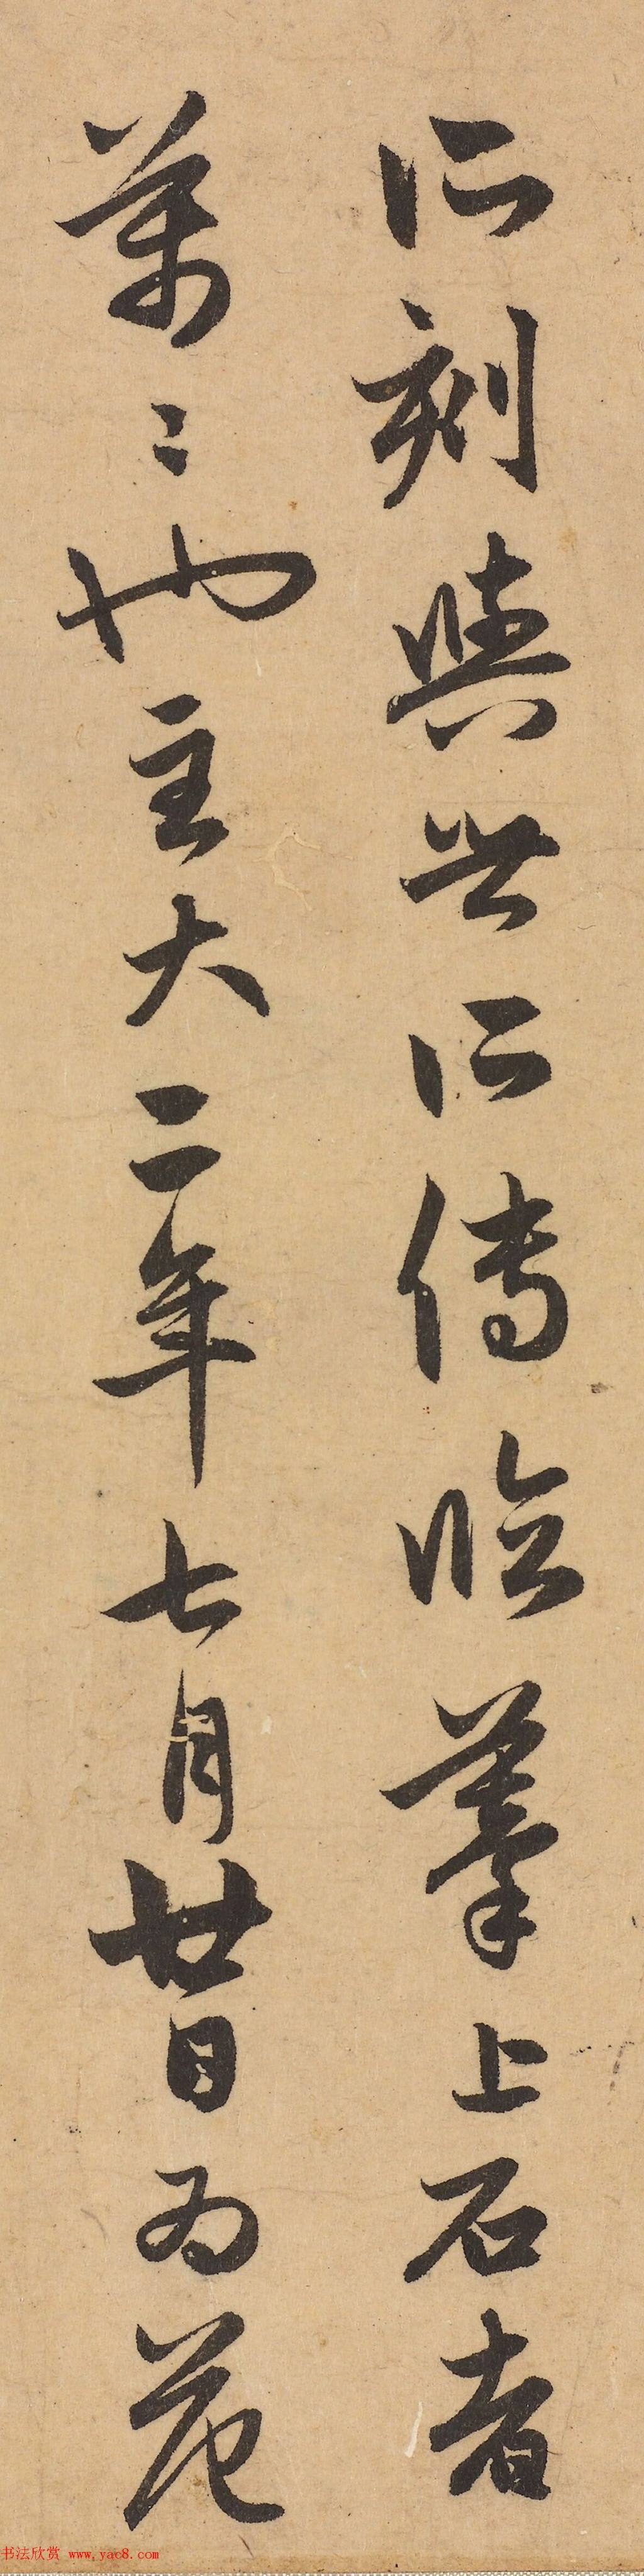 所刻與世所傳臨摹上石者
萬〻也至大二年七月廿日為范
书法欣赏 www.yac8.com